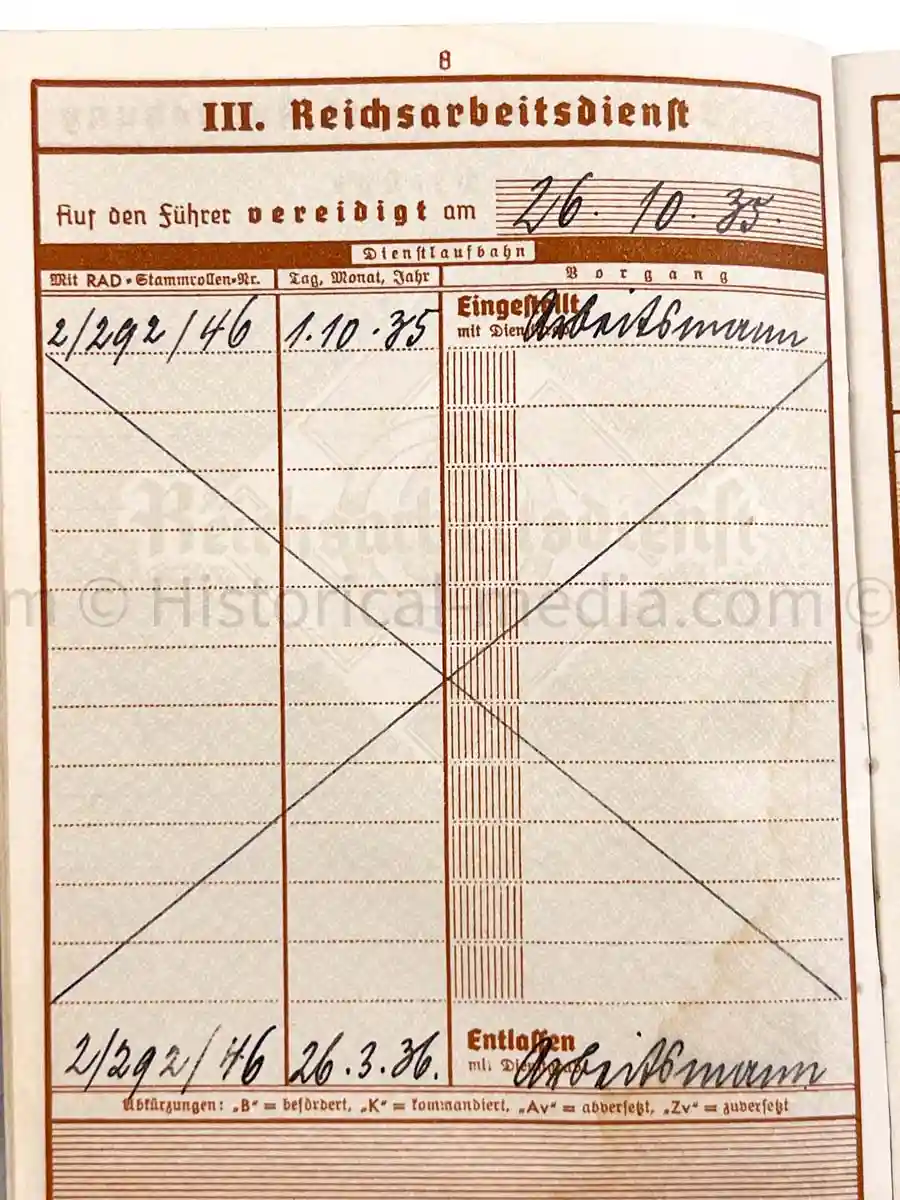 8
III. Reichsarbeitsdienst
Auf den Führer vereidigt am 26. 10. 35.
Dienstlaufbahn
Mit RAD-Stammrollen-Nr. Tag, Monat, Jahr Vorgang
2/292/46 1.10.35 Eingestellt Arbeitsmann
mit
Reichsarbeitsdienst
m © Historical-media.com ©
2/292/46 26.3.36. Entlassen Arbeitsmann
mit
Abkürzungen: „B" = befördert, „K" = kommandiert, „Av" = abversetzt, „Zv" = zuversetzt